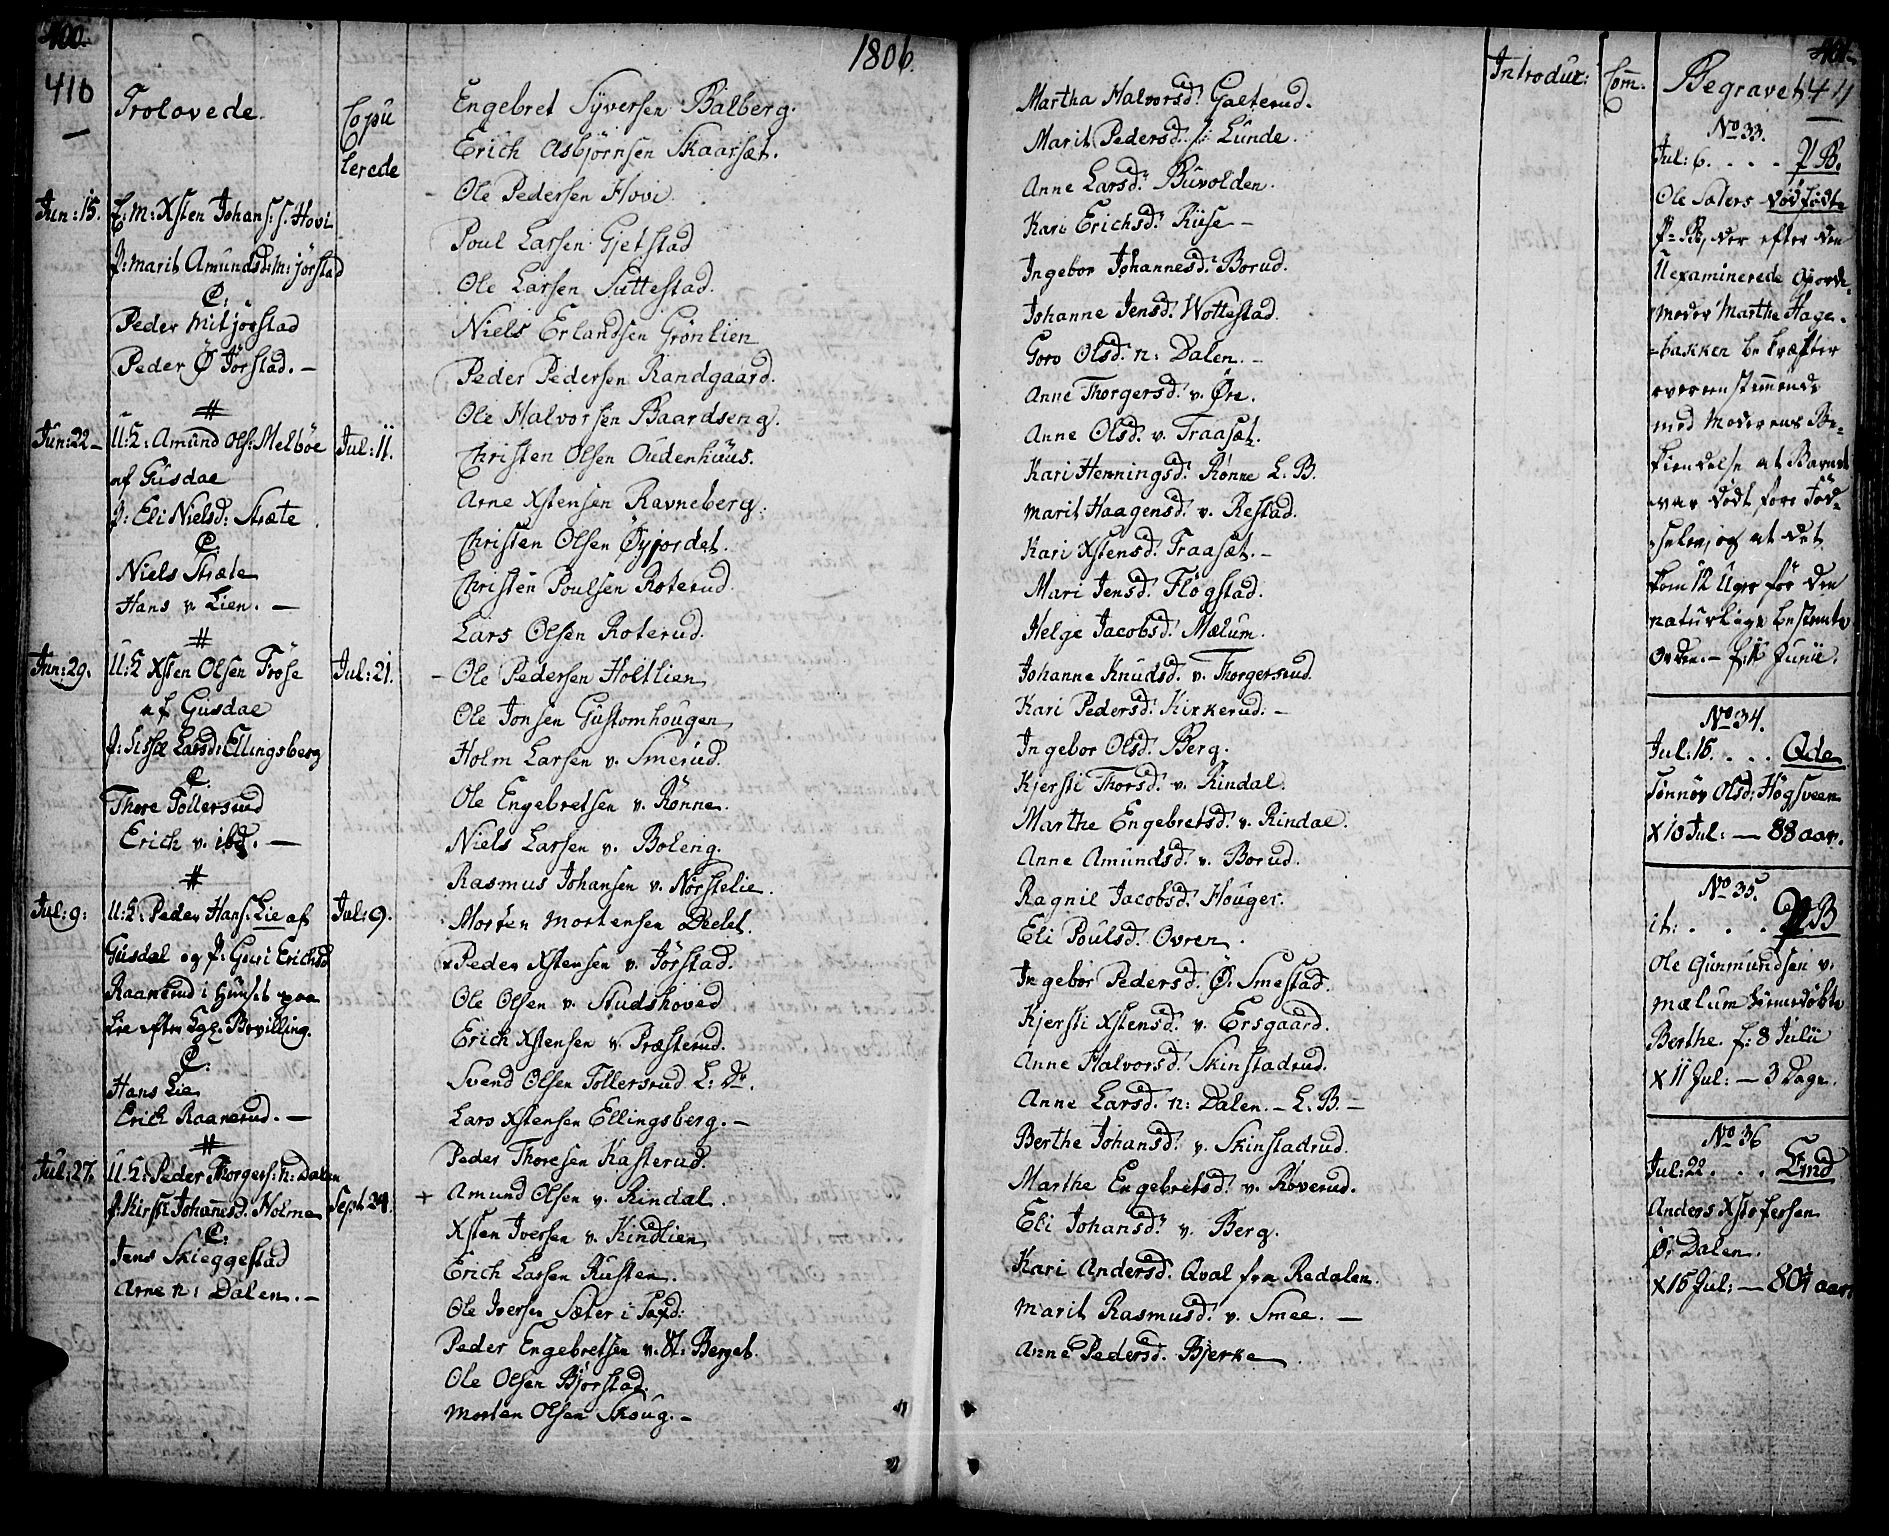 400
410
1806.
Trolovede.
Copu
lerede
Jun: 15. E: M: Xsten Johans: S: Hovi
P: Marit Amundsd: M: Jørstad
C:
Peder Mitjørstad
Peder Ø Jørstad. —
#
Jun: 22 — U: K: Amund Ols: Melbøe Jul: 11.
af Gusdae
P: Eli Nielsd: Stræte
C:
Niels Stræte
Hans v. Lien. —
#
Jun: 29. U: K Xsten Olsen Frøse Jul: 21.
af Gusdae
P: Sissæ Larsd: Ellingsberg
C:
Thore Tollersrud
Erich v. ibd. —
#
Jul: 9: U: K: Peder Hans: Lie af Jul: 9.
Gusdal og P: Guri Erichsd
Raanerud i
Lie efter Kgl: Bevilling.
C:
Hans Lie
Erich Raanerud. —
#
Jul: 27. U: K: Peder Thorgers: n: Dalen
P: Kirsti Johannsd. Holme Sept: 24.
C:
Jens Skieggestad
Arne n: Dalen. —
Engebret Syversen Bálberg.
Erich Asbjørnsen Skaarsæt.
Ole Pedersen Hovi
Poul Larsen Gjetstad
Ole Larsen Suttestad.
Niels Erlandsen Grønlien
Peder Pedersen Randgaard.
Ole Halvorsen Baardseng.
Christen Olsen Oudenhuus.
Arne Xstensen Ravneberg.
Christen Olsen Øyjordet.
Christen Poulsen Roterud.
Lars Olsen Roterud.
— Ole Pedersen Holtlien
Ole Jonsen Gustomhougen
Holm Larsen v. Smerud.
Ole Engebretsen v. Rønne.
Niels Larsen v. Boleng.
Rasmus Johansen v. Nørstelie.
Morten Mortensen Deelet.
x Peder Xstensen v. Jørstad.
Ole Olsen v. Studshoved
Erich Xstensen v. Præsterud.
Svend Olsen Tollersrud L: Dr.
Lars Xstensen Ellingsberg. —
Peder Thoresen Kasterud.
+ Amund Olsen v. Rindal.
Xsten Iversen v. Kindlien
Erich Larsen Rusten.
Ole Iversen Sæter i
Peder Engebretsen v. St: Berget.
Ole Olsen Bjørstad.
Morten Olsen Skoug. —
Martha Halvorsd. Galterud.
Marit Pedersd. S: Lunde.
Anne Larsd. Buvolden.
Kari Erichsd. Riise —
Ingebor Johannesd. Borud.
Johanne Jensd. Wottestad.
Goro Olsd. n: Dalen. —
Anne Thorgersd. v. Øre.
Anne Olsd. v. Traasæt.
Kari Henningsd. Rønne L. B.
Marit Haagensd. v. Restad.
Kari Xstensd. Traasæt. —
Mari Jensd. Fløgstad.
Helge Jacobsd. Mælum.
Johanne Knudsd. v. Thorgersrud.
Kari Pedersd. Kirkerud. —
Ingebor Olsd. Berg.
Kjersti Thorsd. v. Rindal.
Marthe Engebretsd. v. Rindae.
Anne Amundsd. v. Borud.
Ragnil Jacobsd. Houger.
Eli Poulsd. Ovren.
Ingebor Pedersd. Ø. Smestad.
Kjersti Xstensd. v. Ersgaard.
Anne Halvorsd. Skinstadrud.
Anne Larsd. n: Dalen. — L. B. —
Berthe Johansd. v. Skinstadrud.
Marthe Engebretsd. v. Røverud.
Eli Johansd. v. Berg.
Kari Andersd. Qval fra Redalen.
Marit Rasmusd. v. Smee. —
Anne Pedersd. Bjerke
Introduc:
Com.
401
Begravet 411
No 33.
Jul: 6. . . . P B.
Ole Saters dødfødte
P= B, der efter den
Uexaminerede Gjorde-
moder Marthe Hage-
-bakken bekræfter
overeenstemmende
med Moderens Be-
kiendelse at Barnet
var dødt före Fød-
-selen, og at det
kom 12 Uger før den
naturlige bestemte
Orden. — f: 11 Junii.
No 34.
Jul: 15. . . . Qde
Tønnøv Olsd: Høgsveen
X 10 Jul: — 88 aar.
No 35.
it: . . . P B
Ole Gunmundsen v.
Mælum hiemedøbte
Berthe f: 8 Julii
X 11 Jul: — 3 Dage.
No 36
Jul: 22 . . . Emd
Anders Xstofersen
Ø: Dalen.
X 15 Jul: — 80½ aar.